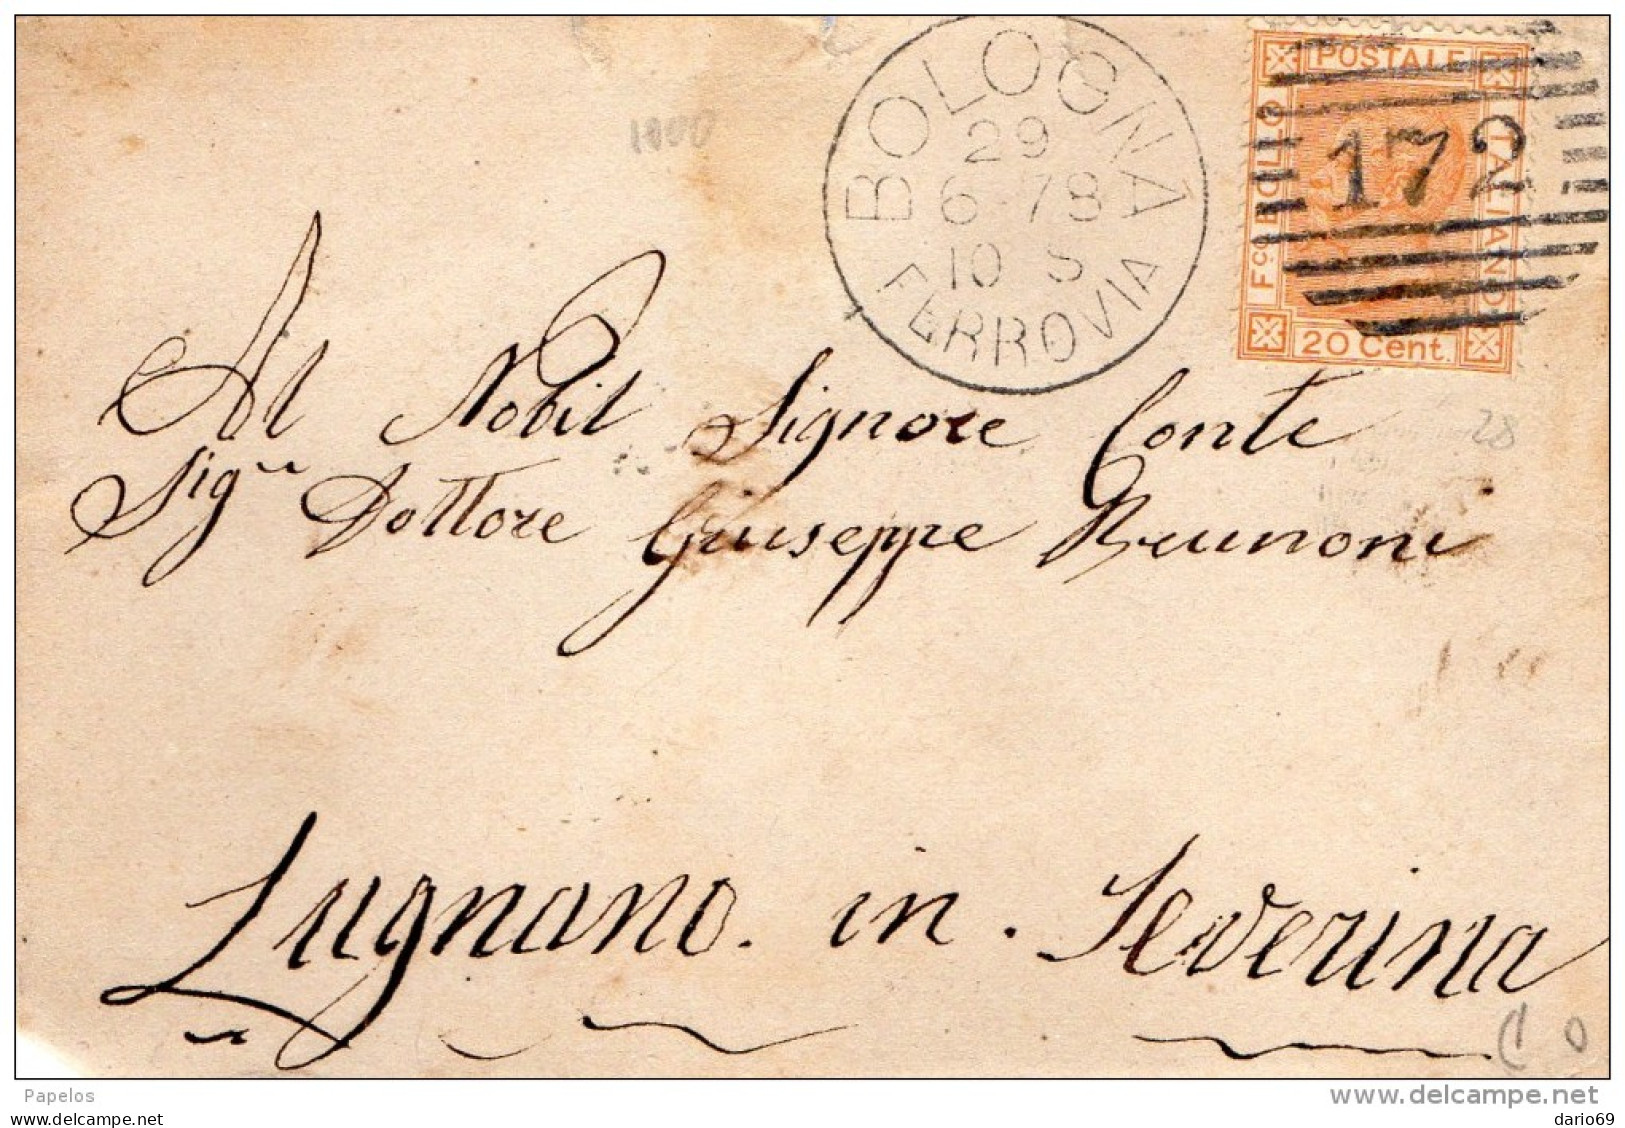 BOLOGNA
29
6 78
10 S
FERROVIA
POSTALE
Fco BOLLO
ITALIANO
20 Cent.
172
1000
Al Nobil Signore Conte
28
Sig.r Dottore Giuseppe
Lugnano. in. Severina
Papelos
www.delcampe.net
dario69